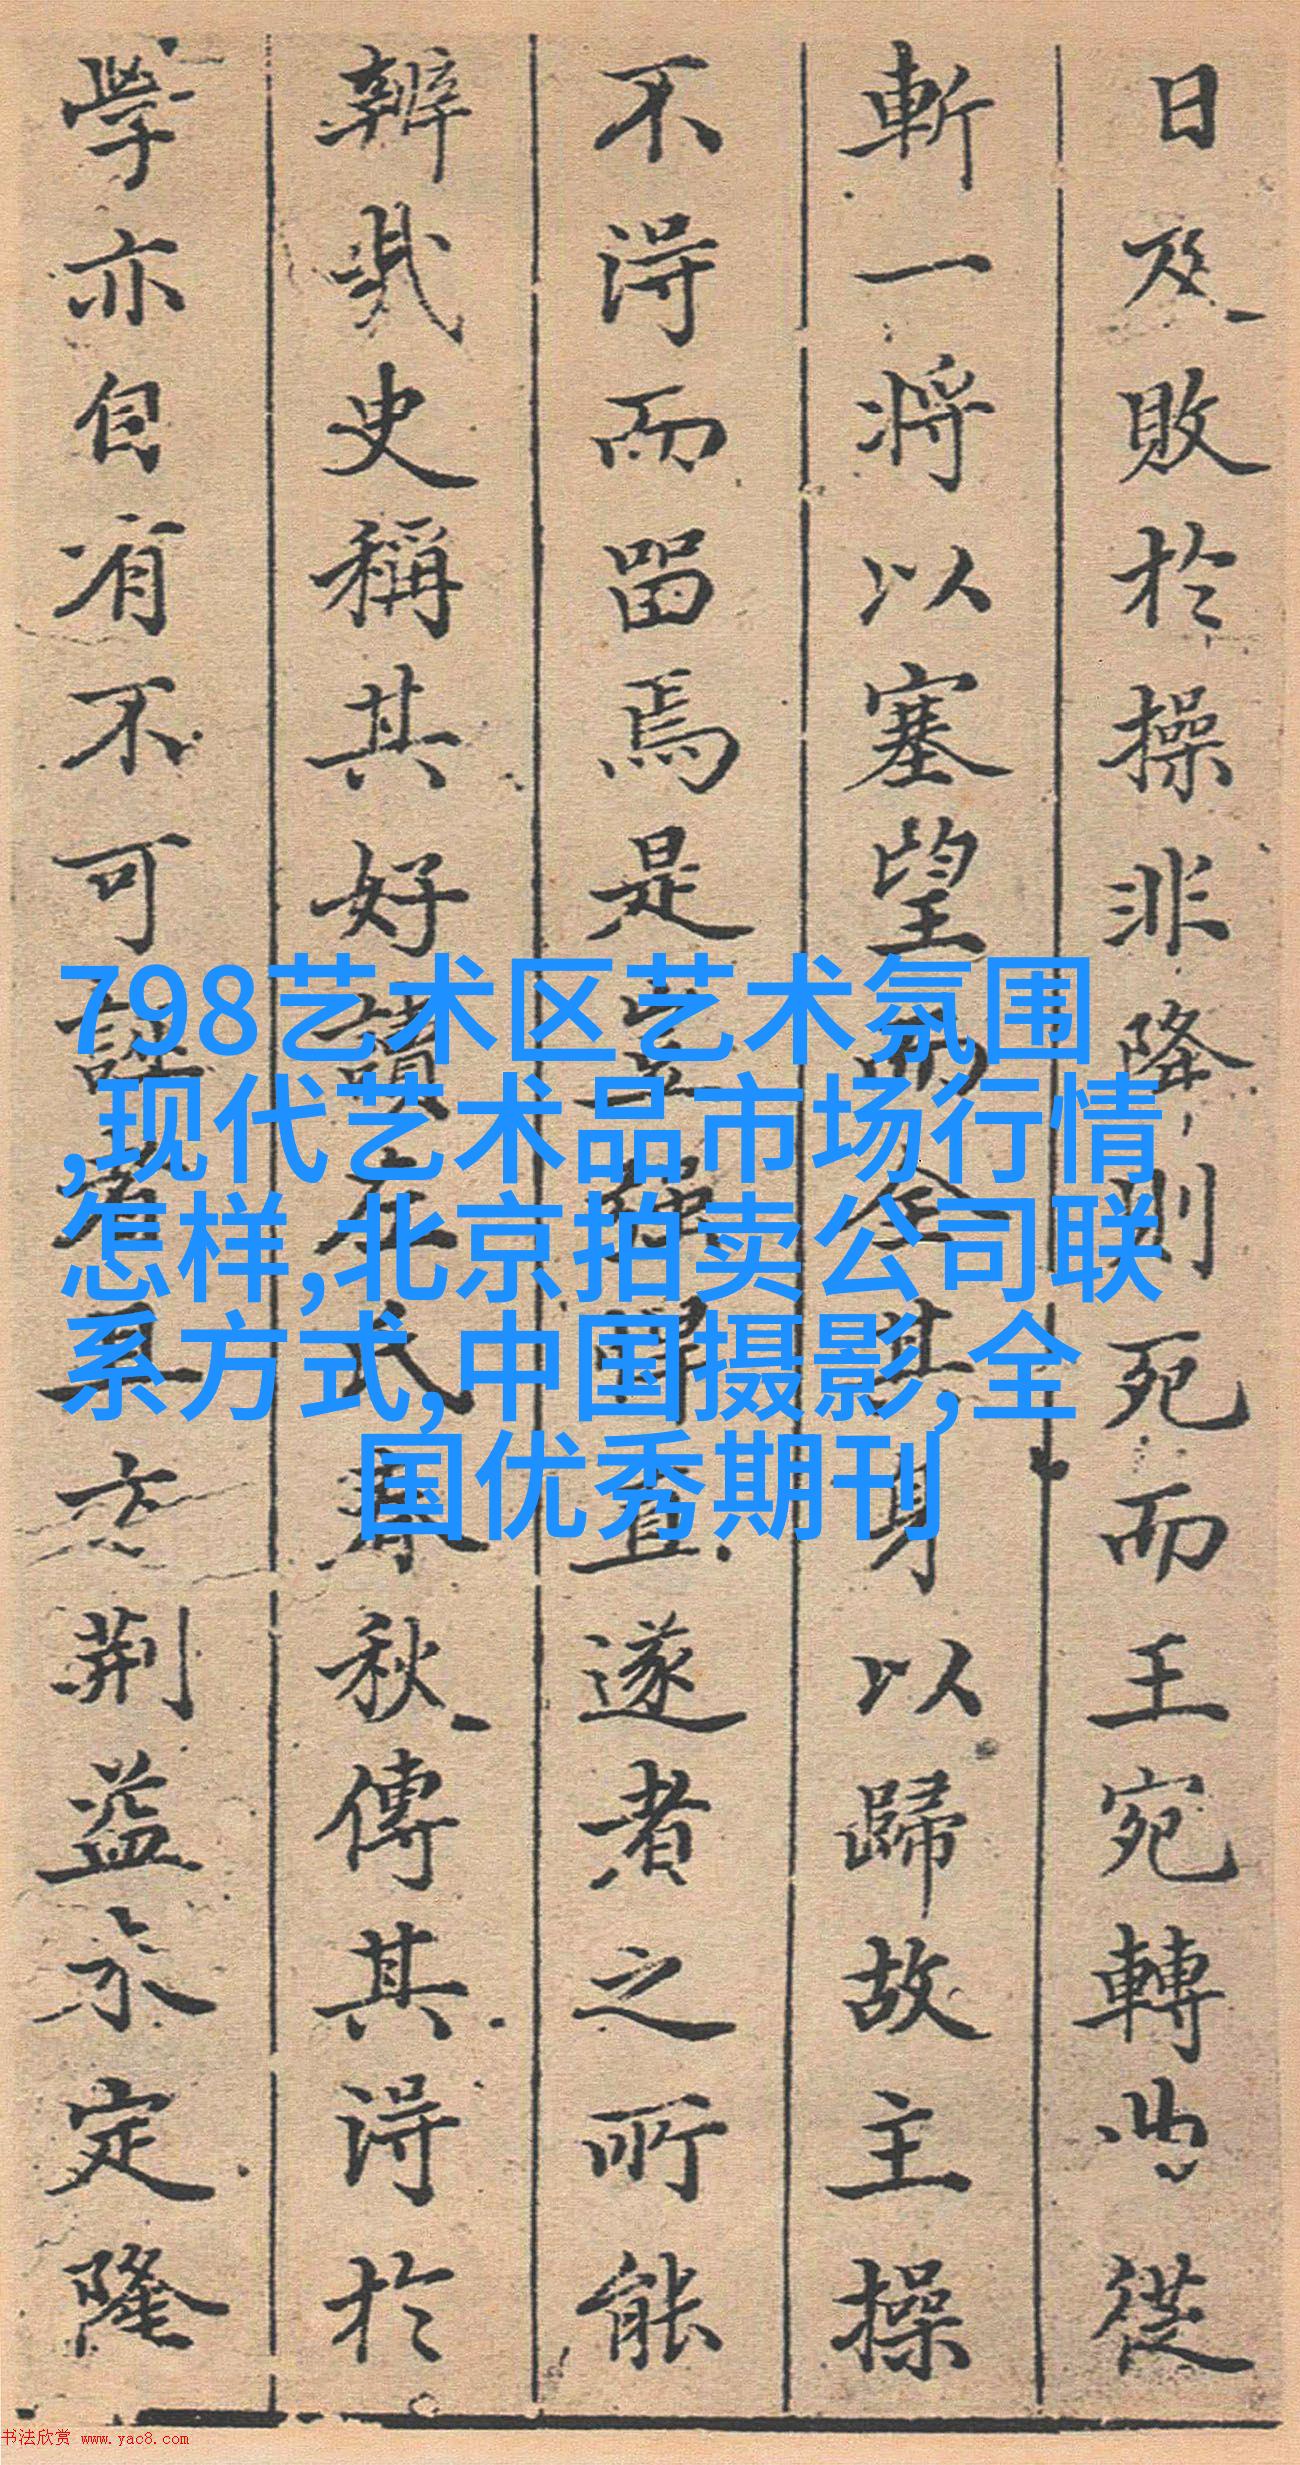 日及敗於操非降則死而王宛轉曲從
斬一將以塞望而全其身以歸故主操
不得而留焉是豈強悍直遂者之所能
辨哉史稱其好讀左氏春秋傳其得於
學亦自有不可誣者且夫荊益未定隆
798艺术区艺术氛围
,现代艺术品市场行情
怎样,北京拍卖公司联
系方式,中国摄影,全
国优秀期刊
书法欣赏 www.yac8.com